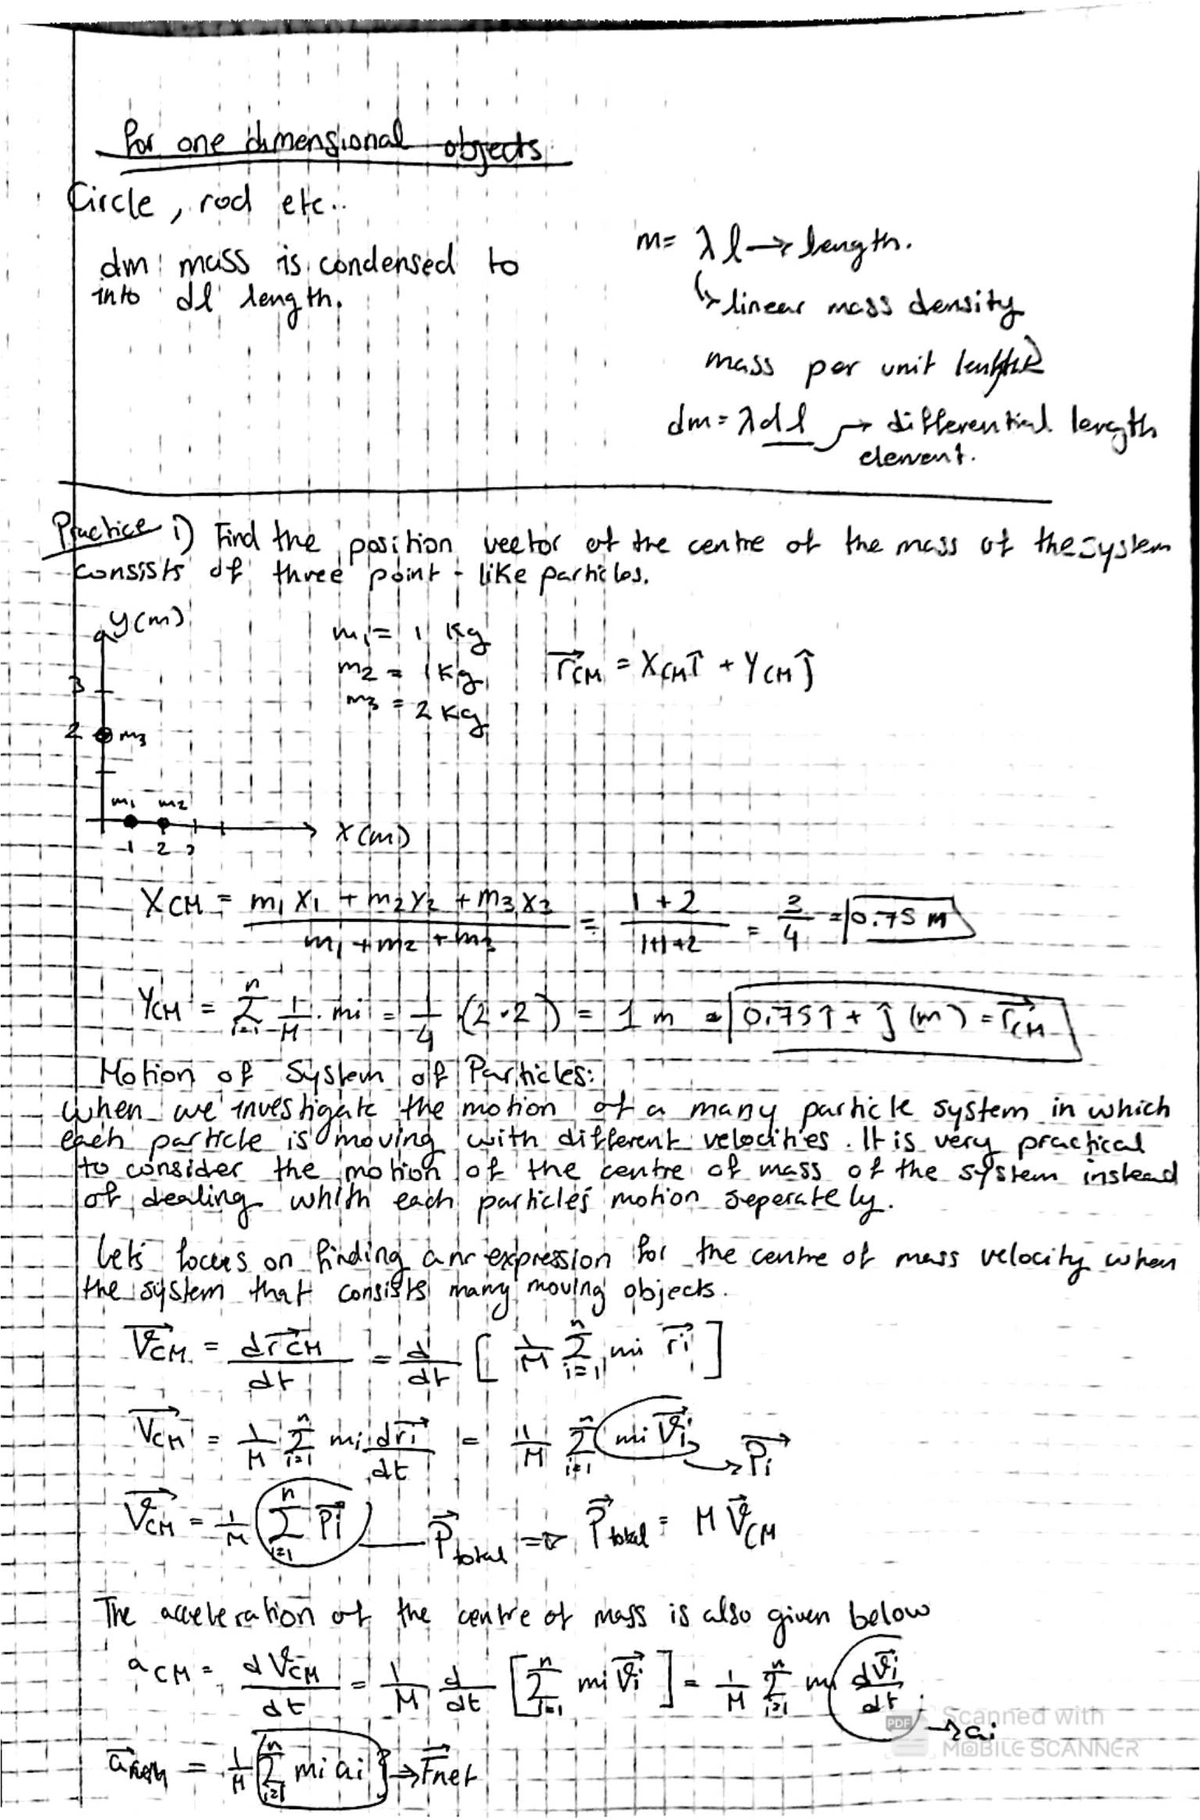 for one dimensional objects
Circle, rod etc..
dm mass is condensed to
into dl length.
m = λl → length.
↳ linear mass density
mass per unit length
dm = λdl → differential length
element.
Practice i) Find the position vector of the centre of the mass of the system
consists of three point-like particles.
y(m)
3
2 m3
m1 m2
1 2 3
x(m)
m1 = 1 kg
m2 = 1 kg
m3 = 2 kg
r⃗CM = XCM î + YCM ĵ
XCM = (m1 x1 + m2 x2 + m3 x3) / (m1 + m2 + m3) = (1 + 2) / (1+1+2) = 3/4 = 0.75 m
YCM = Σ(i=1 to n) 1/M · mi = 1/4 (2·2) = 1 m = 0.75 î + ĵ (m) = r⃗CM
Motion of System of Particles:
When we investigate the motion of a many particle system in which
each particle is moving with different velocities. It is very practical
to consider the motion of the centre of mass of the system instead
of dealing whith each particles motion seperately.
Let's focus on finding an expression for the centre of mass velocity when
the system that consists many moving objects.
V⃗CM = dr⃗CM/dt = d/dt [ 1/M Σ(i=1 to n) mi r⃗i ]
V⃗CM = 1/M Σ(i=1 to n) mi dr⃗i/dt = 1/M Σ(i=1 to n) mi V⃗i → P⃗i
V⃗CM = 1/M Σ(i=1 to n) P⃗i — P⃗total => P⃗total = M V⃗CM
The acceleration of the centre of mass is also given below
aCM = dV⃗CM/dt = 1/M d/dt [ Σ(i=1 to n) mi V⃗i ] = 1/M Σ(i=1 to n) mi dV⃗i/dt → ai
a⃗CM = 1/M Σ(i=1 to n) mi ai → F⃗net
PDF Scanned with
MOBILE SCANNER